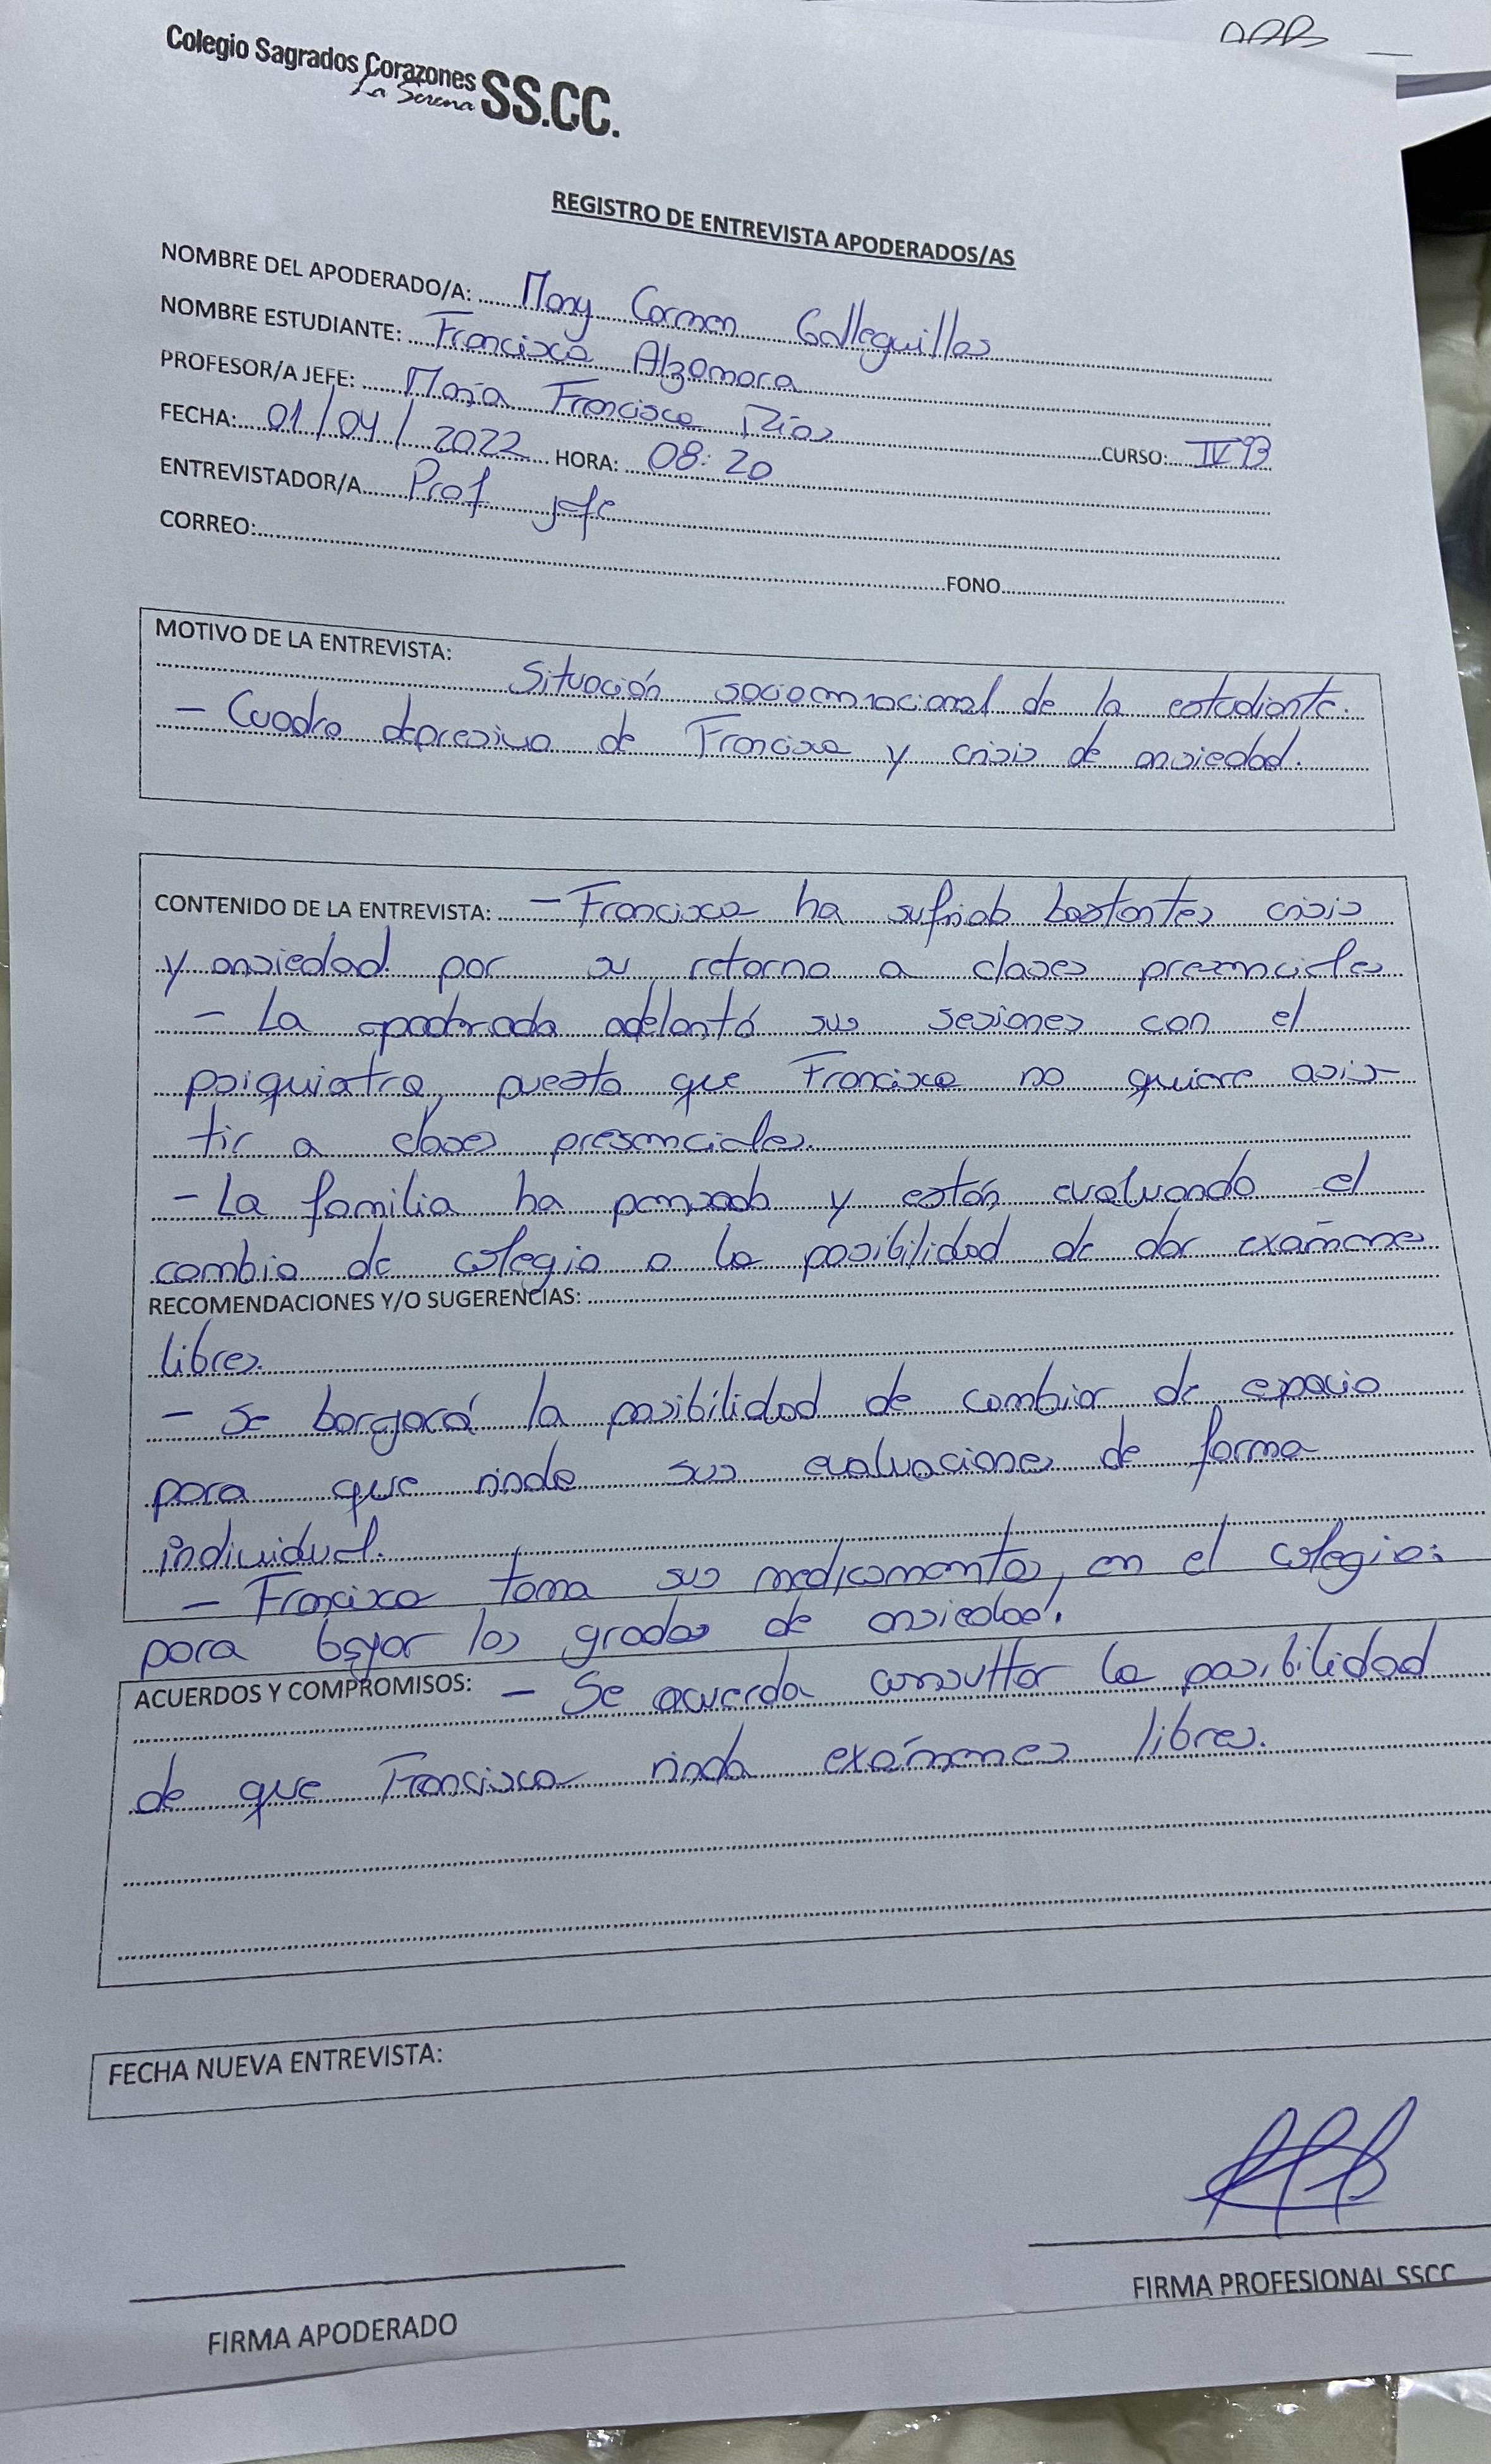 Colegio Sagrados Corazones SS.CC.
La Serena
REGISTRO DE ENTREVISTA APODERADOS/AS
NOMBRE DEL APODERADO/A: Mary Carmen Galleguillos
NOMBRE ESTUDIANTE: Francisca Alzamora
PROFESOR/A JEFE: María Francisca Ríos CURSO: IV°B
FECHA: 01/04/2022 HORA: 08:20
ENTREVISTADOR/A Prof jefe
CORREO: FONO
MOTIVO DE LA ENTREVISTA:
Situación socioemocional de la estudiante.
- Cuadro depresivo de Francisca y crisis de ansiedad.
CONTENIDO DE LA ENTREVISTA: - Francisca ha sufrido bastantes crisis
y ansiedad por su retorno a clases presenciales
- La apoderada adelantó sus sesiones con el
psiquiatra, puesto que Francisca no quiere asis-
tir a clases presenciales.
- La familia ha pensado y están evaluando el
cambio de colegio o la posibilidad de dar exámenes
RECOMENDACIONES Y/O SUGERENCIAS:
libres.
- Se la posibilidad de cambiar de espacio
para que rinda sus evaluaciones de forma
individual.
- Francisca toma sus medicamentos, en el colegio:
para bajar los grados de ansiedad.
ACUERDOS Y COMPROMISOS: - Se acuerda consultar la posibilidad
de que Francisca rinda exámenes libres.
FECHA NUEVA ENTREVISTA:
FIRMA APODERADO
FIRMA PROFESIONAL SSCC